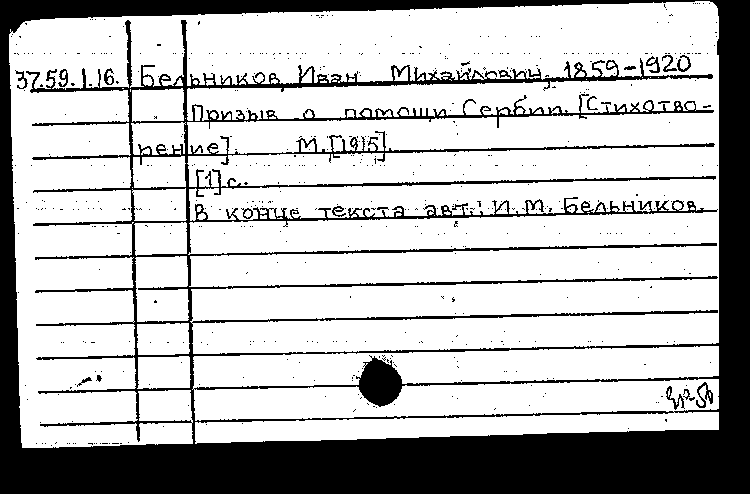 37.59.1.16. Бельников, Иван Михайлович, 1859-1920
Призыв о помощи Сербии. [Стихотво-
рение]. М.[1915].
[1]с.
В конце текста авт.: И.М. Бельников.